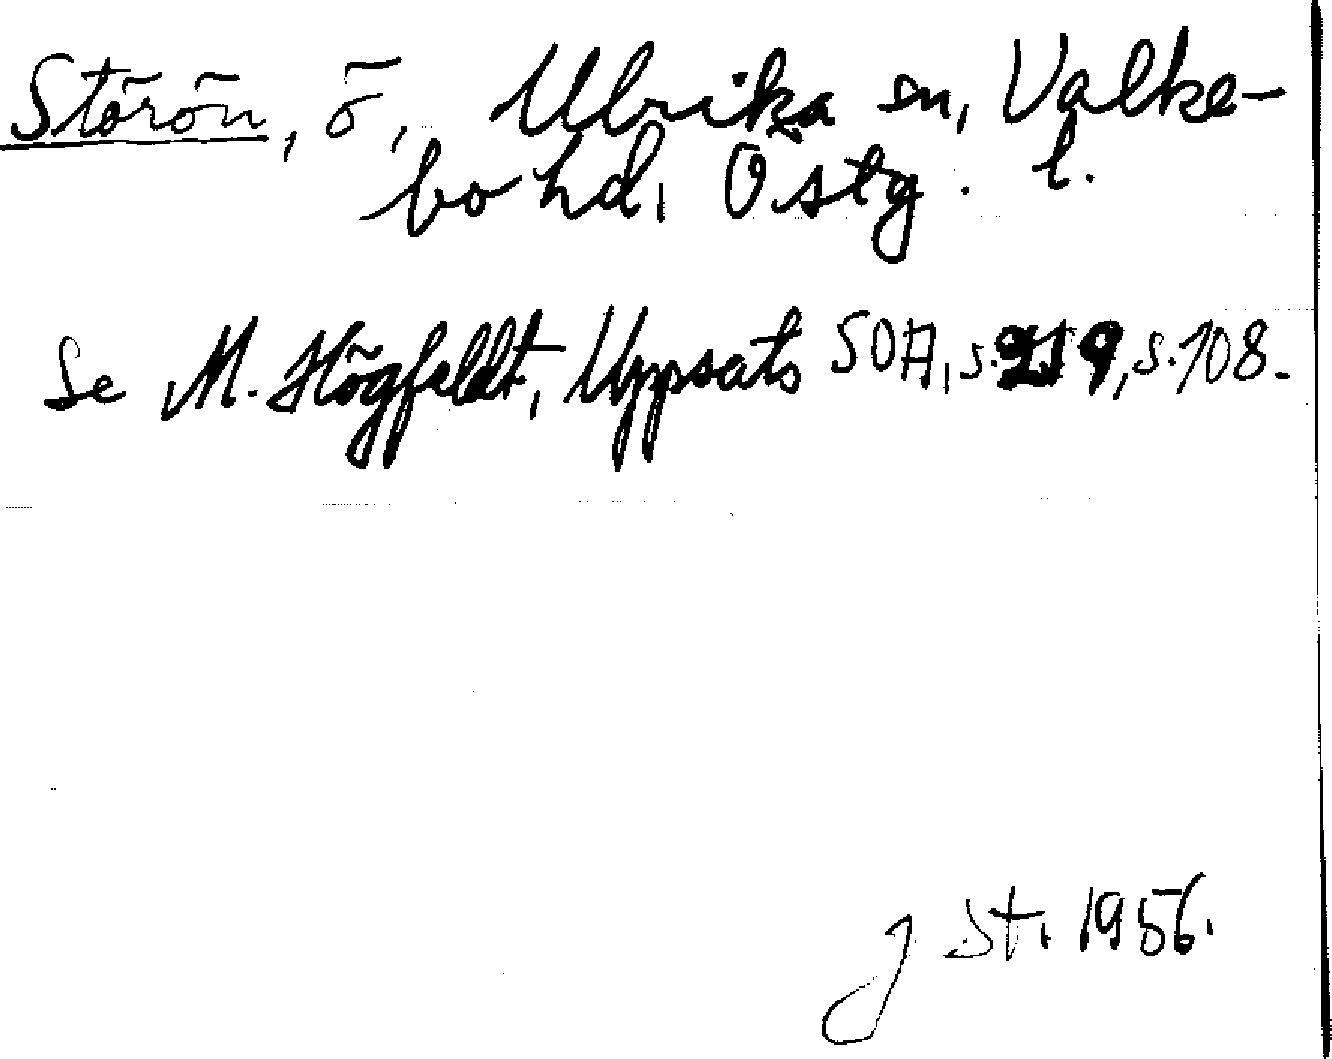 Störön, ö, Ulrika sn, Valke-
bo hd, Östg. l.
Se M. Högfeldt, Uppsats SOA, s. 219, s. 108.
J St. 1956.